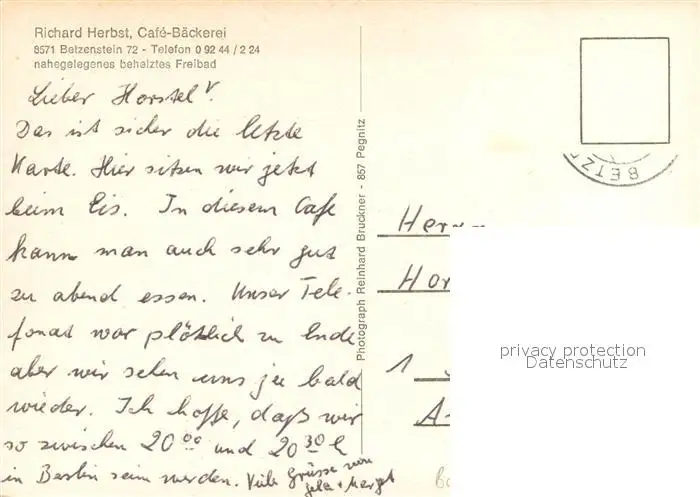 Richard Herbst, Café-Bäckerei
8571 Betzenstein 72 - Telefon 0 92 44 / 2 24
nahegelegenes beheiztes Freibad
Lieber Horstel
Das ist sicher die letzte
Karte. Hier sitzen wir jetzt
beim Eis. In diesem Cafe
kann man auch sehr gut
zu abend essen. Unser Tele-
fonat war plötzlich zu Ende
aber wir sehen uns ja bald
wieder. Ich hoffe, daß wir
so zwischen 20⁰⁰ und 20³⁰ h
in Berlin sein werden. Viele Grüsse von
+ Margot
Photograph Reinhard Bruckner - 857 Pegnitz
BETZ
Herrn
Hor
1
A
privacy protection
Datenschutz